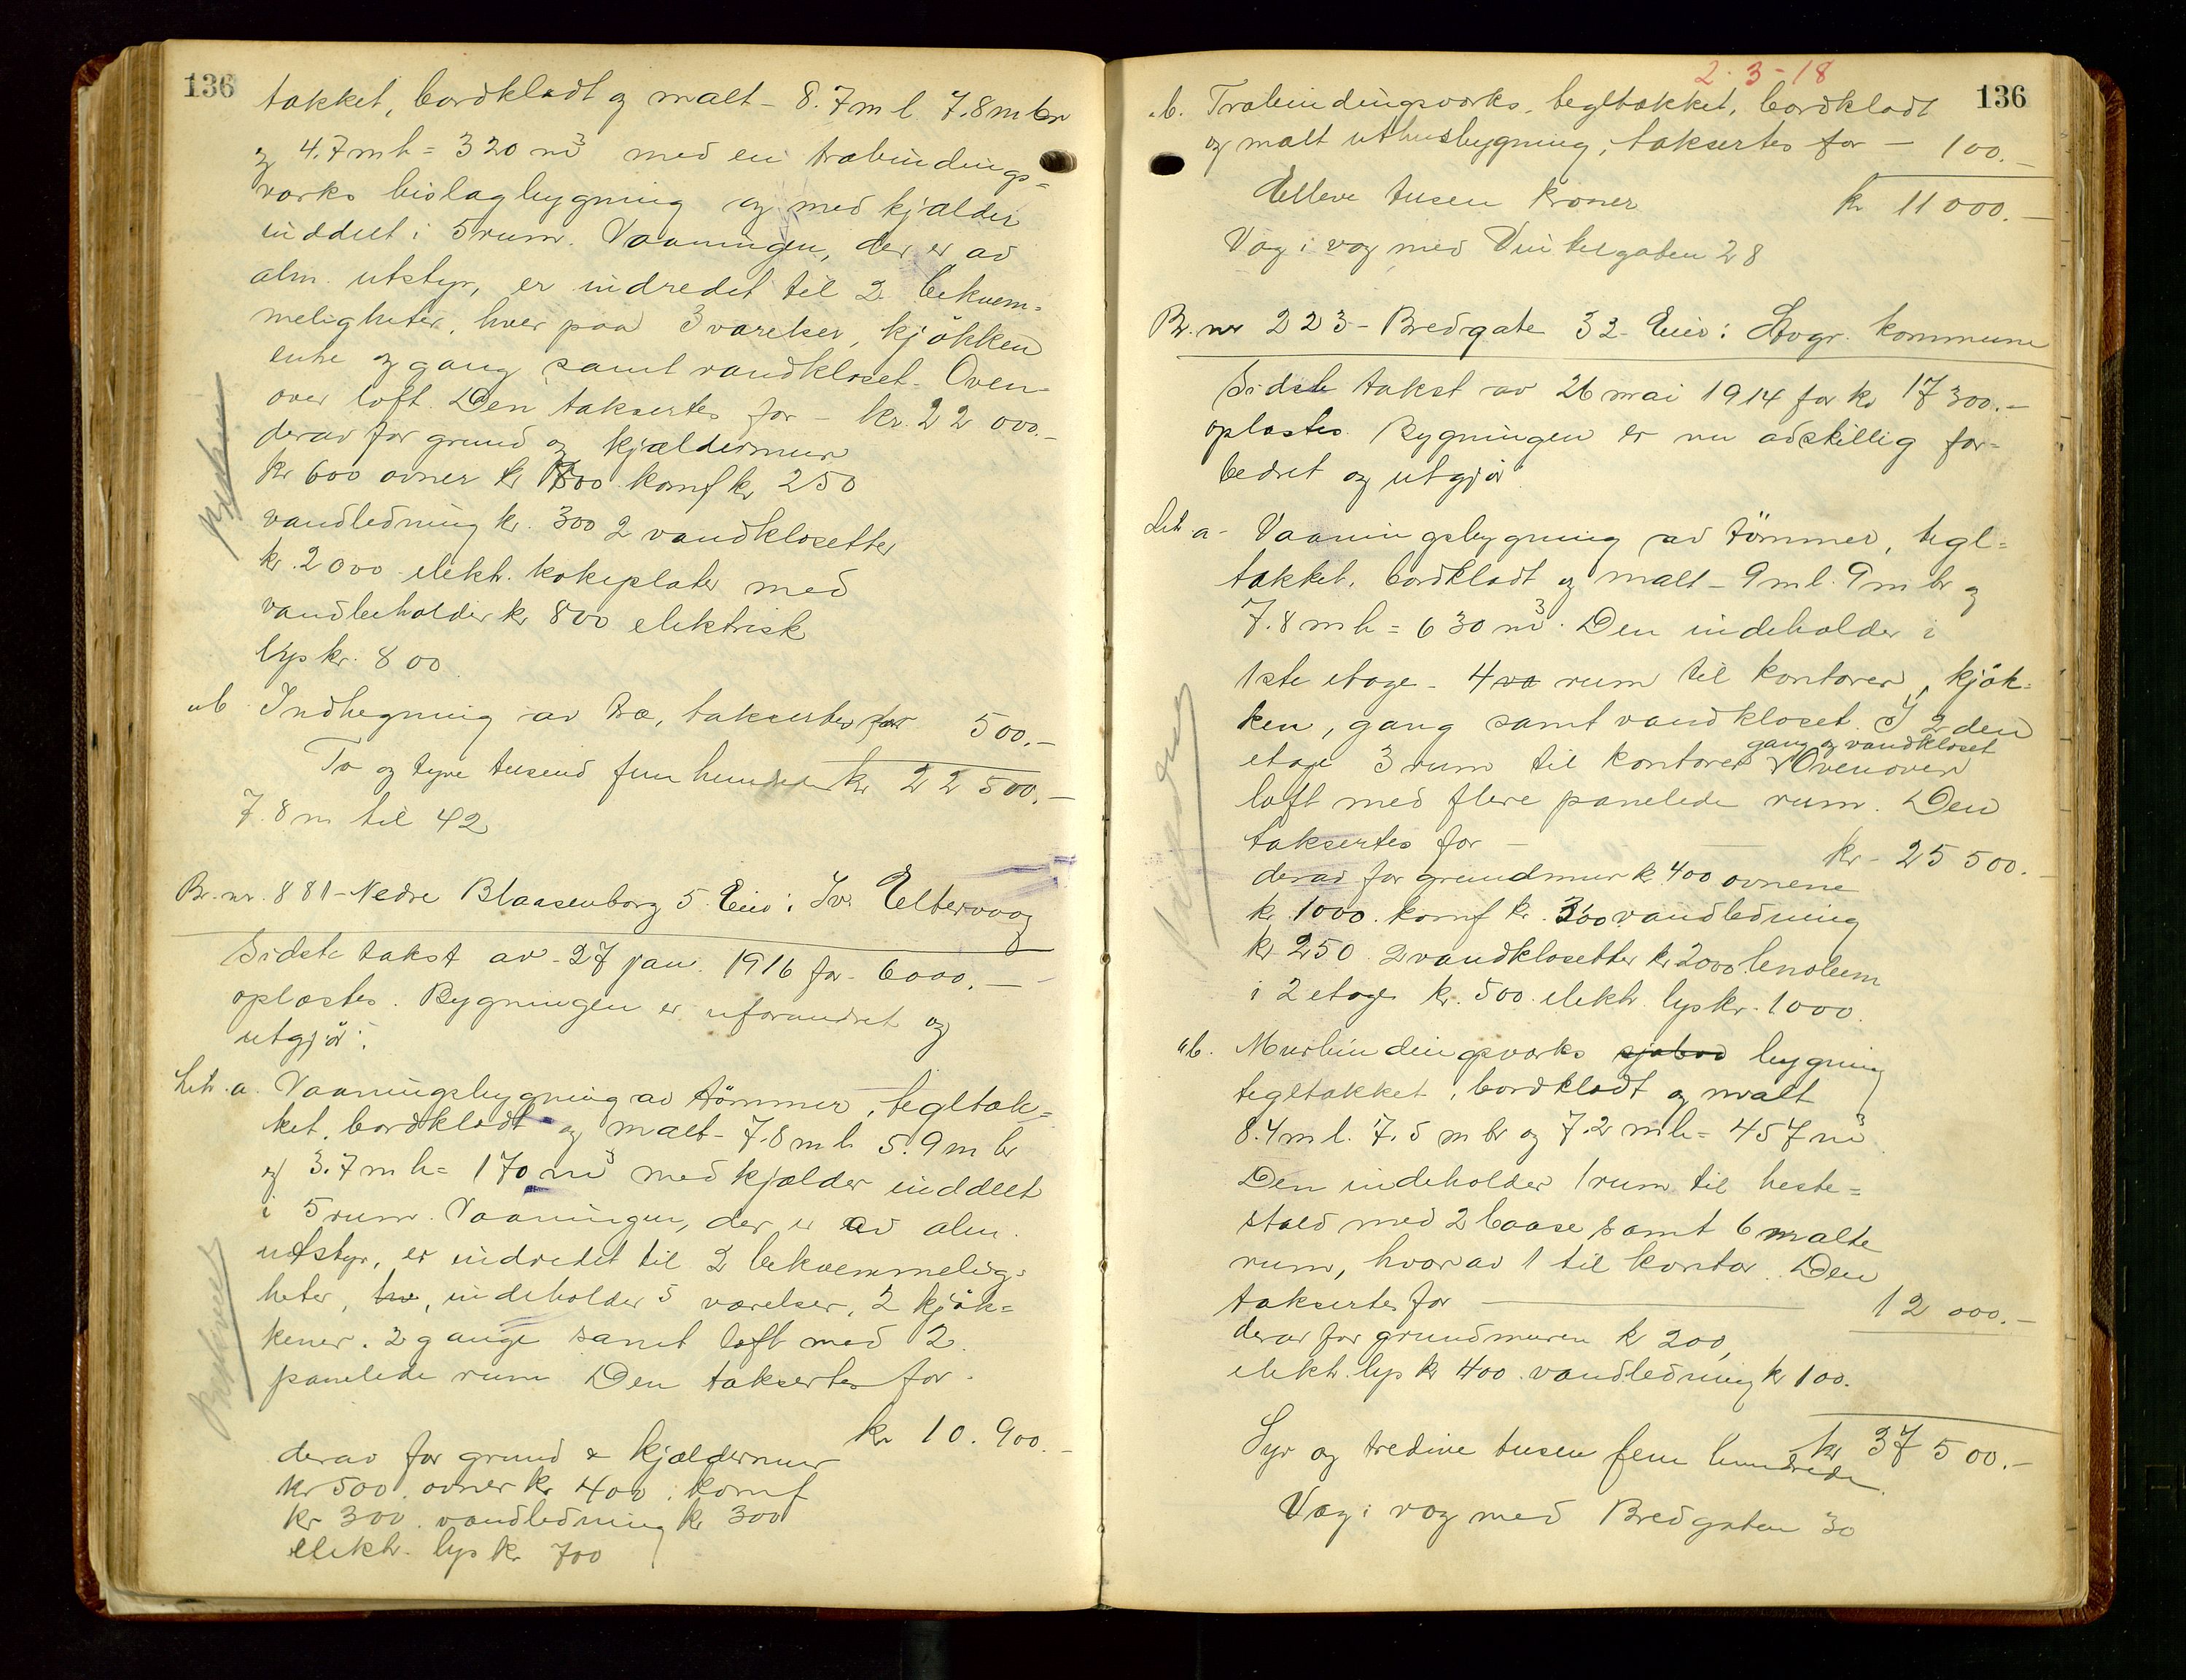 136
takket, bordklædt og malt - 8.7 m l. 7.8 m br
og 4.7 m h = 320 m³ med en træbindings=
værks bislagbygning og med kjælder
inddelt i 5 rum. Vaaningen, der er av
alm. utstyr, er indredet til 2 bekvem=
meligheter, hver paa 3 værelser, kjøkken
entre og gang samt vandkloset. Oven
over loft. Den taksertes for - kr. 22 000.-
derav for grund og kjældermur
kr 600 ovner kr 700 komf kr 250
vandledning kr. 300 2 vandklosetter
kr. 2000 elekt. kokeplater med
vandbeholder kr 800 elektrisk
lys kr. 800
"b Indhegning av træ, taksertes for 500.-
To og tyve tusend fem hundrede kr 22 500.-
7.8 m til 42
Br. nr. 881 - Nedre Blaasenborg 5. Eier: Iv. Eltervaag
Sidste takst av 27 jan. 1916 for 6000.-
oplæstes. Bygningen er uforandret og
utgjør:
Litr. a. Vaaningsbygning av tømmer, tegltæk=
ket, bordklædt og malt - 7.8 m l. 5.9 m br
og 3.7 m h = 170 m³ med kjælder inddelt
i 5 rum. Vaaningen, der er av alm.
utstyr, er indredet til 2 bekvemmelig=
heter, hv, indeholder 5 værelser, 2 kjøk=
kener. 2 gange samt loft med 2
panelede rum Den taksertes for
kr 10.900.-
derav for grund & kjældermur
kr 500. ovner kr 400. komf
kr 300 vandledning kr 300
elektr. lys kr 700
2-3-18
136
"b. Træbindingsværks, tegltækket, bordklædt
og malt uthusbygning, taksertes for - 100.-
Elleve tusen kroner kr 11000.-
Væg i væg med Vintergaten 28
Br. nr 223 - Bredgate 32 - Eier: Stvgr. kommune
Sidste takst av 26 mai 1914 for kr 17300.-
oplæstes. Bygningen er nu adskillig for=
bedret og utgjør
Litr. a - Vaaningsbygning av tømmer, tegl=
tækket, bordklædt og malt - 9 m l. 9 m br og
7.8 m h = 630 m³. Den indeholder i
1ste etage - 4 væ rum til kontorer, kjøk=
ken, gang samt vandkloset. I 2den
gang og vandkloset
etage 3 rum til kontorer Ovenover
loft med flere panelede rum. Den
taksertes for - kr - 25 500.-
derav for grundmur kr 400 ovnene
kr. 1000. komf kr. 300 vandledning
kr 250. 2 vandklosetter kr 2000 lenoleum
i 2 etage kr. 500. elektr. lys kr. 1000.
"b. Murbindingsværks sjøbod bygning
tegltækket, bordklædt og malt
8.4 m l. 7.5 m br og 7.2 m h = 457 m³
Den indeholder 1 rum til heste=
stald med 2 baase samt 6 malte
rum, hvorav 1 til kontor. Den
taksertes for 12 000.-
derav for grundmuren kr 200,
elektr. lys kr 400. vandledning kr 100.
kr 37 500.-
Syv og tredive tusen fem hundrede
Væg i væg med Bredgaten 30